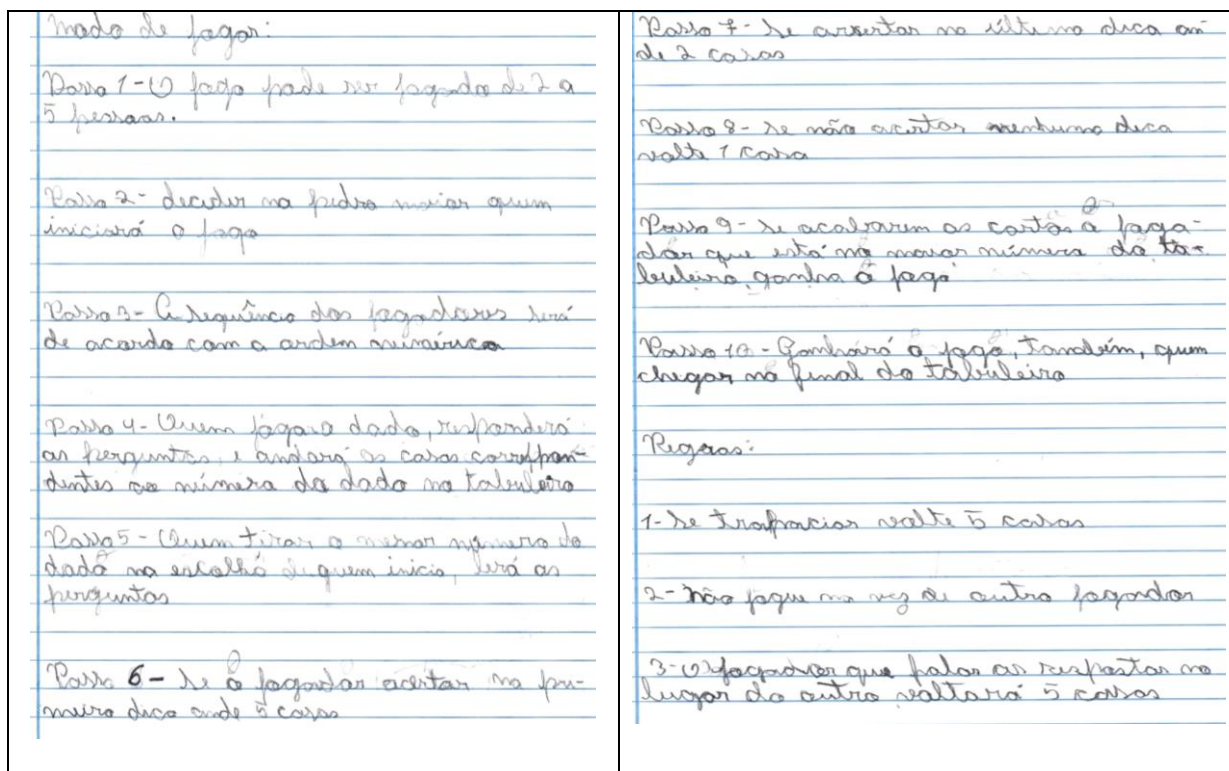 Modo de jogar:
Passo 1- O jogo pode ser jogado de 2 a
5 pessoas.
Passo 2- decidir na pedra maior quem
iniciará o jogo
Passo 3- A sequência dos jogadores será
de acordo com a ordem númérica
Passo 4- Quem jogar o dado, responderá
as perguntas, e andará as casas correspon-
dentes ao número do dado no tabuleiro
Passo 5- Quem tirar o menor número do
dado na escolha de quem inicia, lerá as
perguntas
Passo 6- Se o jogador acertar na pri-
meira dica ande 5 casas
Passo 7- Se acertar na última dica an
de 2 casas
Passo 8- Se não acertar nenhuma dica
volte 1 casa
Passo 9- Se acabarem as cartas o joga-
dor que está no maior número do ta-
buleiro, ganha o jogo
Passo 10- Ganhará o jogo, também, quem
chegar no final do tabuleiro
Regras:
1- Se trapaciar volte 5 casas
2- Não jogue na vez de outro jogador
3- O jogador que falar as respostas no
lugar do outro voltará 5 casas